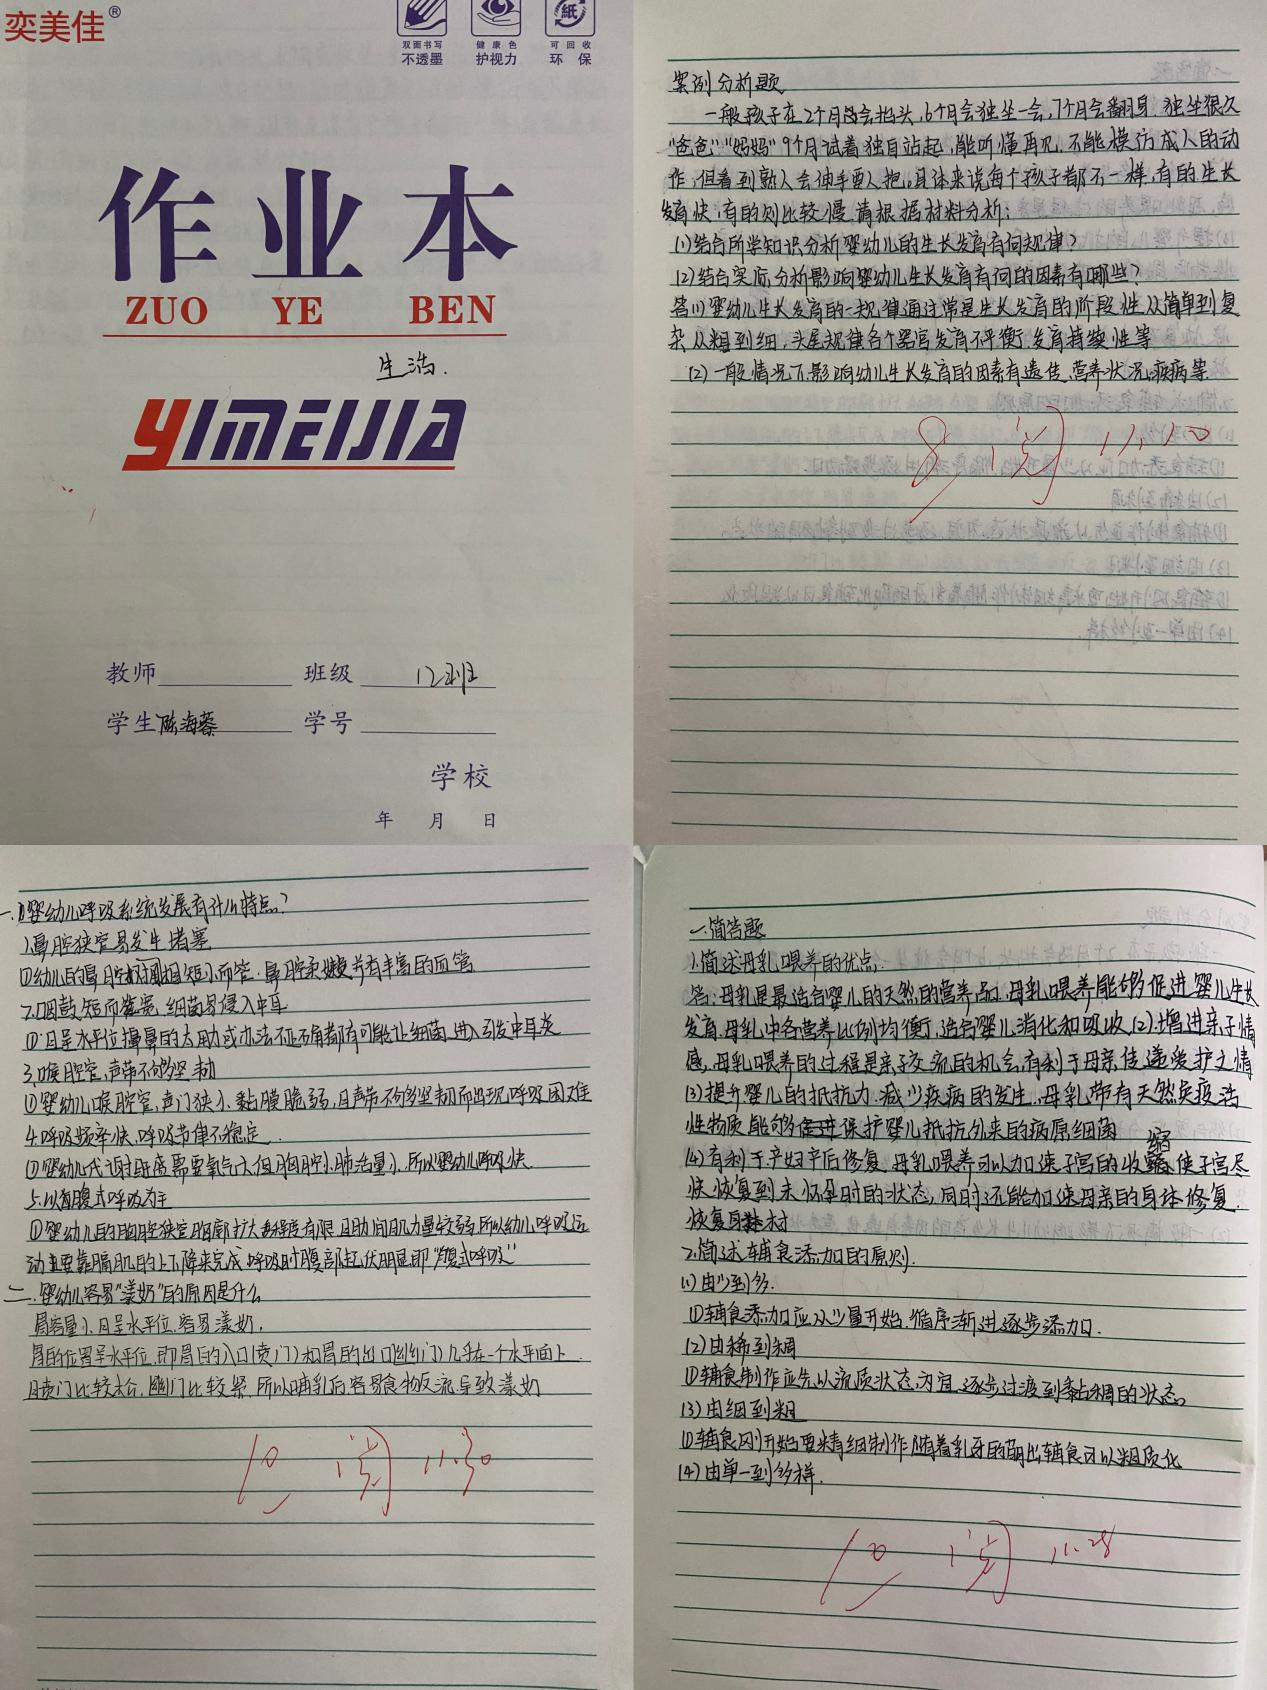 奕美佳®
双面书写
不透墨
健康色
护视力
紙
可回收
环保
作业本
ZUO YE BEN
生活.
YIMEIJIA
教师
班级 12班
学生 陈海蓉
学号
学校
年 月 日
案例分析题
一般孩子在2个月会抬头,6个月会独坐一会,7个月会翻身.独坐很久
"爸爸""妈妈"9个月试着独自站起,能听懂再见.不能模仿成人的动
作,但看到熟人会伸手要人抱。具体来说每个孩子都不一样,有的生长
发育快,有的则比较慢.请根据材料分析:
(1)结合所学知识分析婴幼儿的生长发育有何规律?
(2)结合实际分析影响婴幼儿生长发育有何的因素有哪些?
答(1)婴幼儿生长发育的一规律通过常是生长发育的阶段性从简单到复
杂从粗到细,头尾规律各个器官发育不平衡,发育持续性等
(2)一般情况下影响幼儿生长发育的因素有遗传.营养状况.疾病等.
8 阅 11.20
一.1婴幼儿呼吸系统发展有什么特点?
1.鼻腔狭窄易发生堵塞
①幼儿的鼻腔相短小而窄.鼻腔柔嫩并有丰富的血管
2.咽鼓短而宽,细菌易侵入中耳
①且呈水平位擤鼻的太用力或办法不正确都有可能让细菌,进入引发中耳炎
3.喉腔窄,声带不够坚韧
①婴幼儿喉腔窄,声门狭小,黏膜脆弱,且声带不够坚韧而出现呼吸困难
4.呼吸频率快,呼吸节律不稳定.
①婴幼儿代谢旺盛需要氧气大但胸腔小肺活量小.所以婴幼儿呼吸快
5.以腹式呼吸为主
①婴幼儿的胸腔狭窄胸廓扩大程度有限且肋间肌力量较弱所以幼儿呼吸运
动主要靠膈肌的上下降来完成.呼吸时腹部起伏明显即"腹式呼吸"
二.婴幼儿容易"漾奶"的原因是什么
胃容量小.且呈水平位.容易漾奶.
胃的位置呈水平位.即胃的入口(贲门)和胃的出口(幽门)几乎在一个水平面上.
且贲门比较松.幽门比较紧.所以哺乳后.容易食物反流.导致漾奶
10 阅 11.30
一.简答题
1.简述母乳喂养的优点.
答:母乳是最适合婴儿的天然的营养品.母乳喂养能够促进婴儿生长
发育.母乳中各营养比例均衡,适合婴儿消化和吸收(2).增进亲子情
感,母乳喂养的过程是亲子交流的机会,有利于母亲传递爱护之情
(3)提升婴儿的抵抗力.减少疾病的发生.母乳带有天然免疫活
性物质能够保护婴儿抵抗外来的病原细菌
(4)有利于产妇产后修复.母乳喂养可以加速子宫的收缩使子宫尽
快恢复到未怀孕时的状态,同时还能加速母亲的身体修复.
恢复身材
2.简述辅食添加的原则.
(1)由少到多.
①辅食添加应从少量开始.循序渐进逐步添加.
(2)由稀到稠
①辅食制作应先以流质状态为宜.逐步过渡到黏稠的状态。
(3)由细到粗
①辅食刚开始要精细制作随着乳牙的萌出,辅食可以粗质化
(4)由单一到多样.
10 阅 11.28